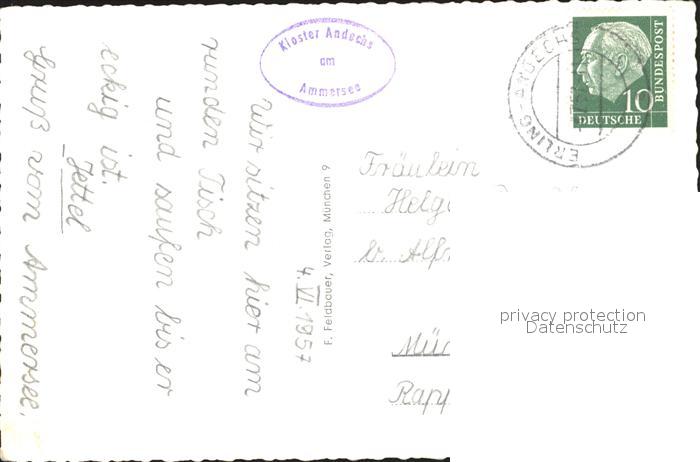 Kloster Andechs
am
Ammersee
ERLING-ANDECHS
BUNDESPOST
10
DEUTSCHE
4.VI.1957
Wir sitzen hier am
runden Tisch
und saufen bis er
eckig ist.
Jettel
Gruß vom Ammersee.
F. Feldbauer, Verlag, München 9
Fräulein
Helg
b. Alf
Mü
Rapp
privacy protection
Datenschutz